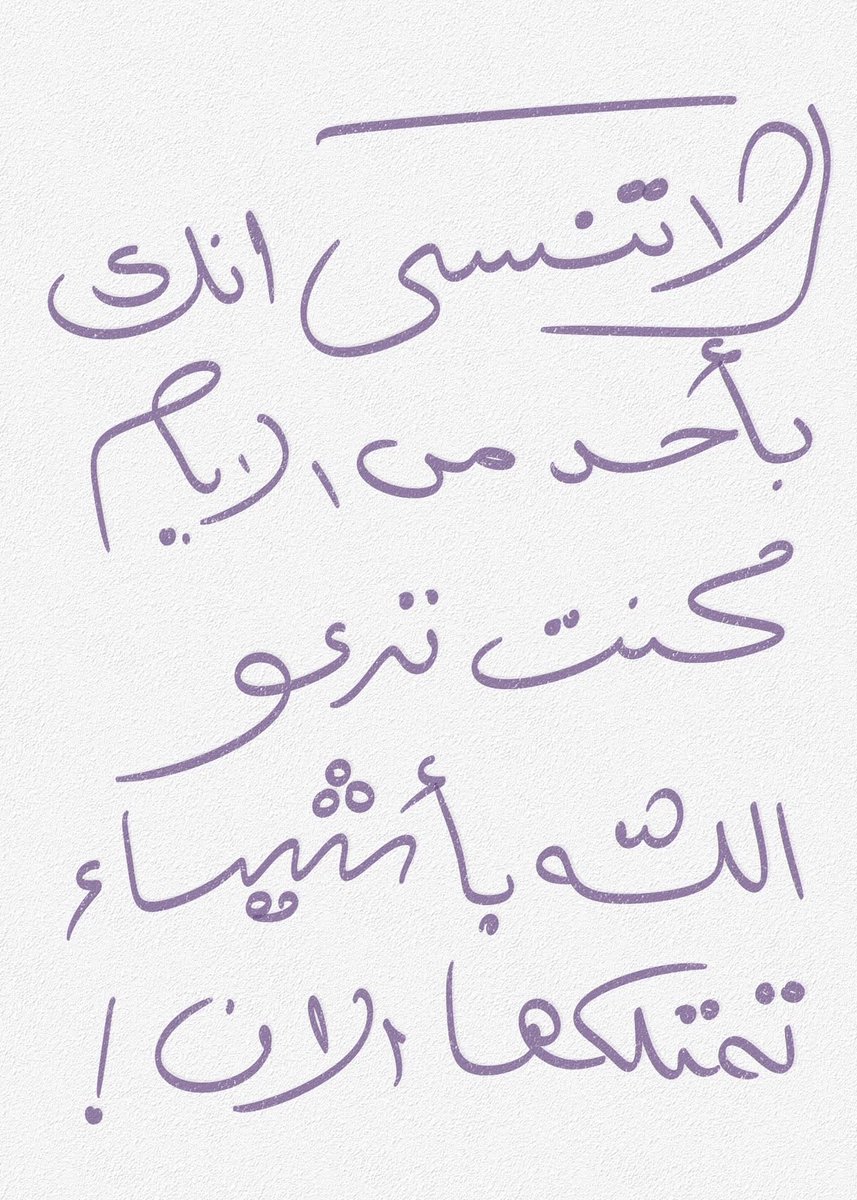 لا تنسى انك
بأحد من الايام
كنت تدعو
الله بأشياء
تمتلكها الان !